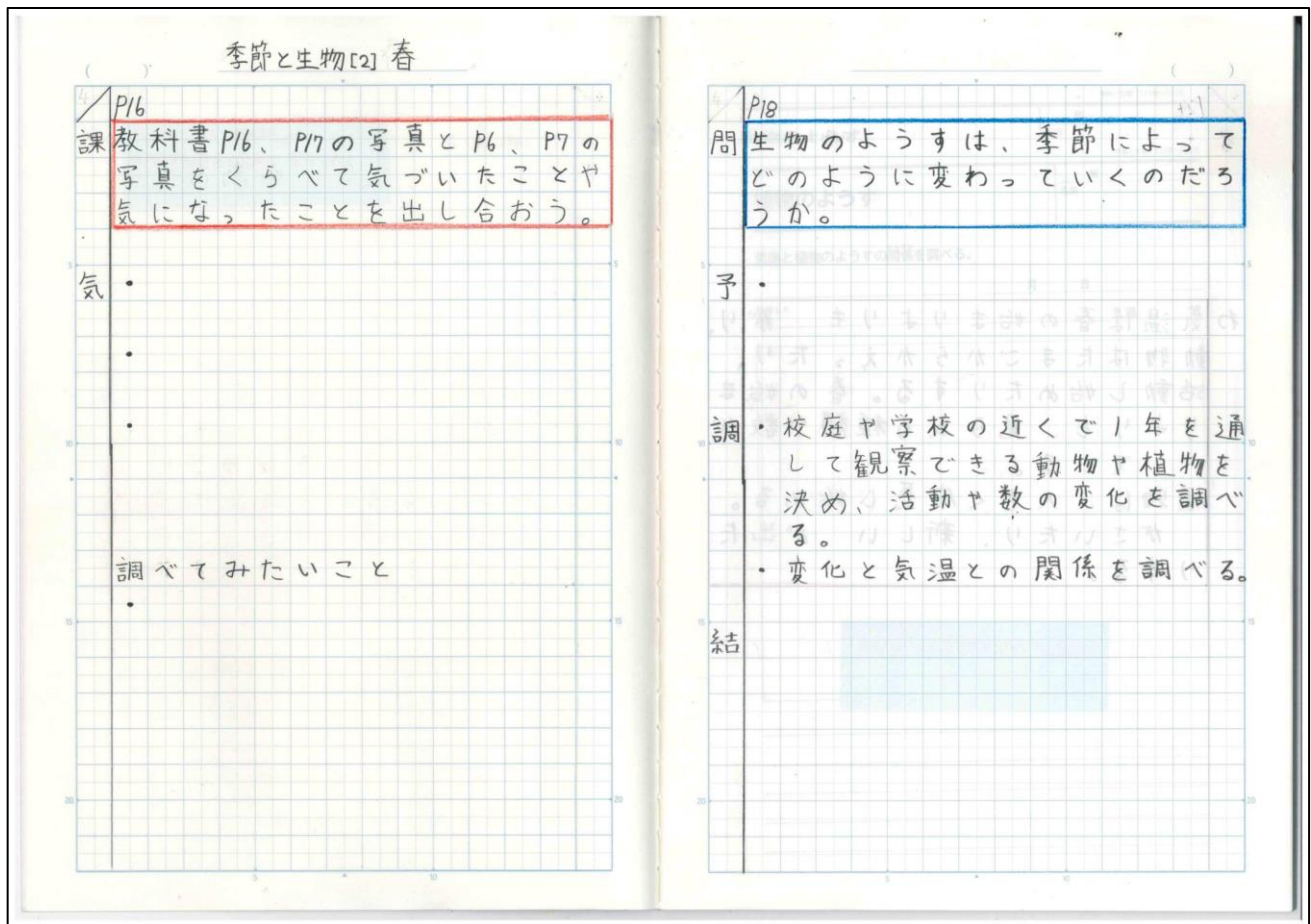 季節と生物[2] 春
P16
課 教科書P16、P17の写真とP6、P7の
写真をくらべて気づいたことや
気になったことを出し合おう。
気 ・
・
・
調べてみたいこと
・
P18
問 生物のようすは、季節によって
どのように変わっていくのだろ
うか。
予 ・
調 ・校庭や学校の近くで1年を通
して観察できる動物や植物を
決め、活動や数の変化を調べ
る。
・変化と気温との関係を調べる。
結